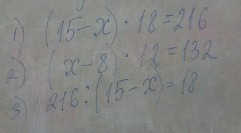 1) (15-x) · 18 = 216
2) (x-8) · 12 = 132
3) 216 : (15-x) = 18